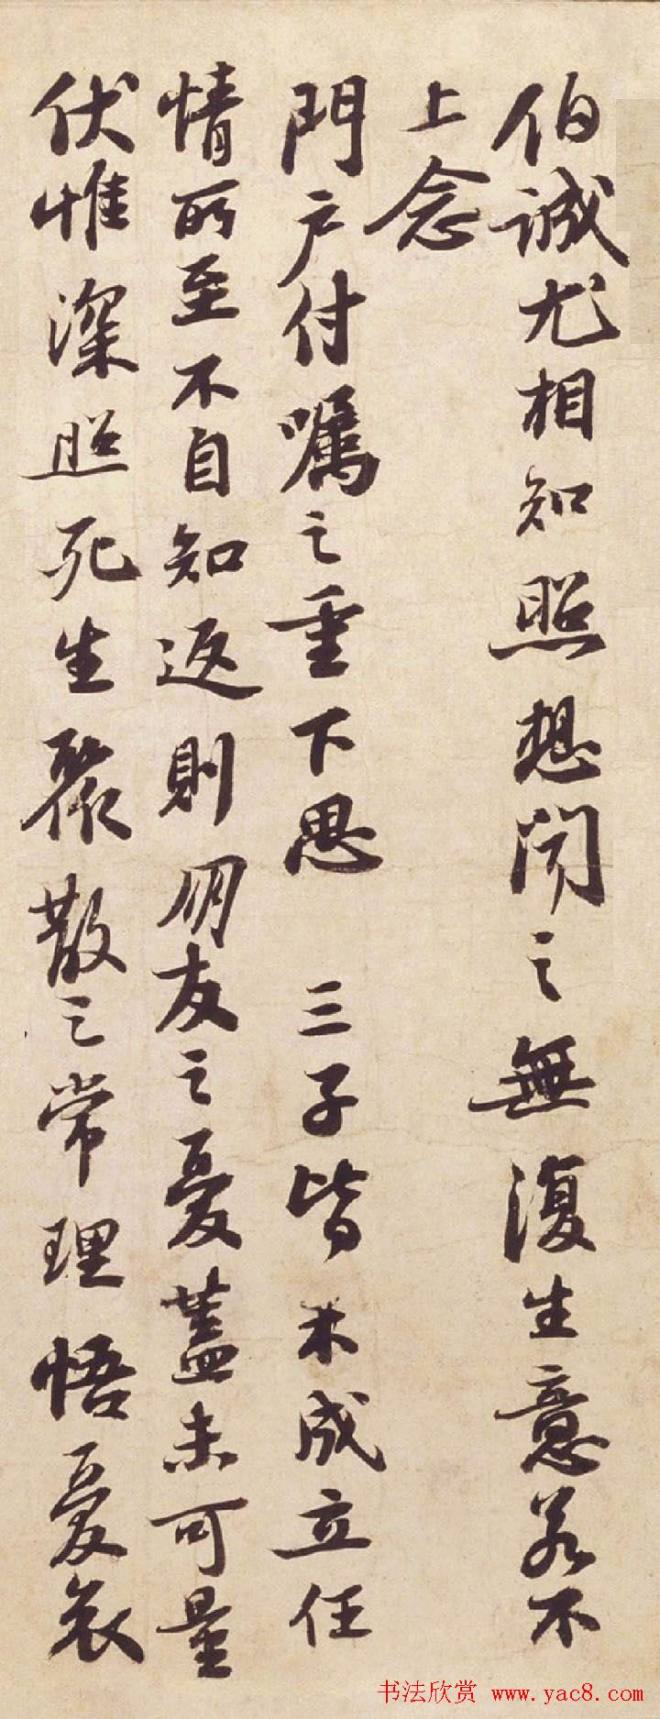 伯誠尤相知照想聞之無復生意若不
上念
門户付囑之重下思 三子皆未成立任
情所至不自知返則朋友之憂蓋未可量
伏惟深照死生聚散之常理悟憂哀
书法欣赏 www.yac8.com